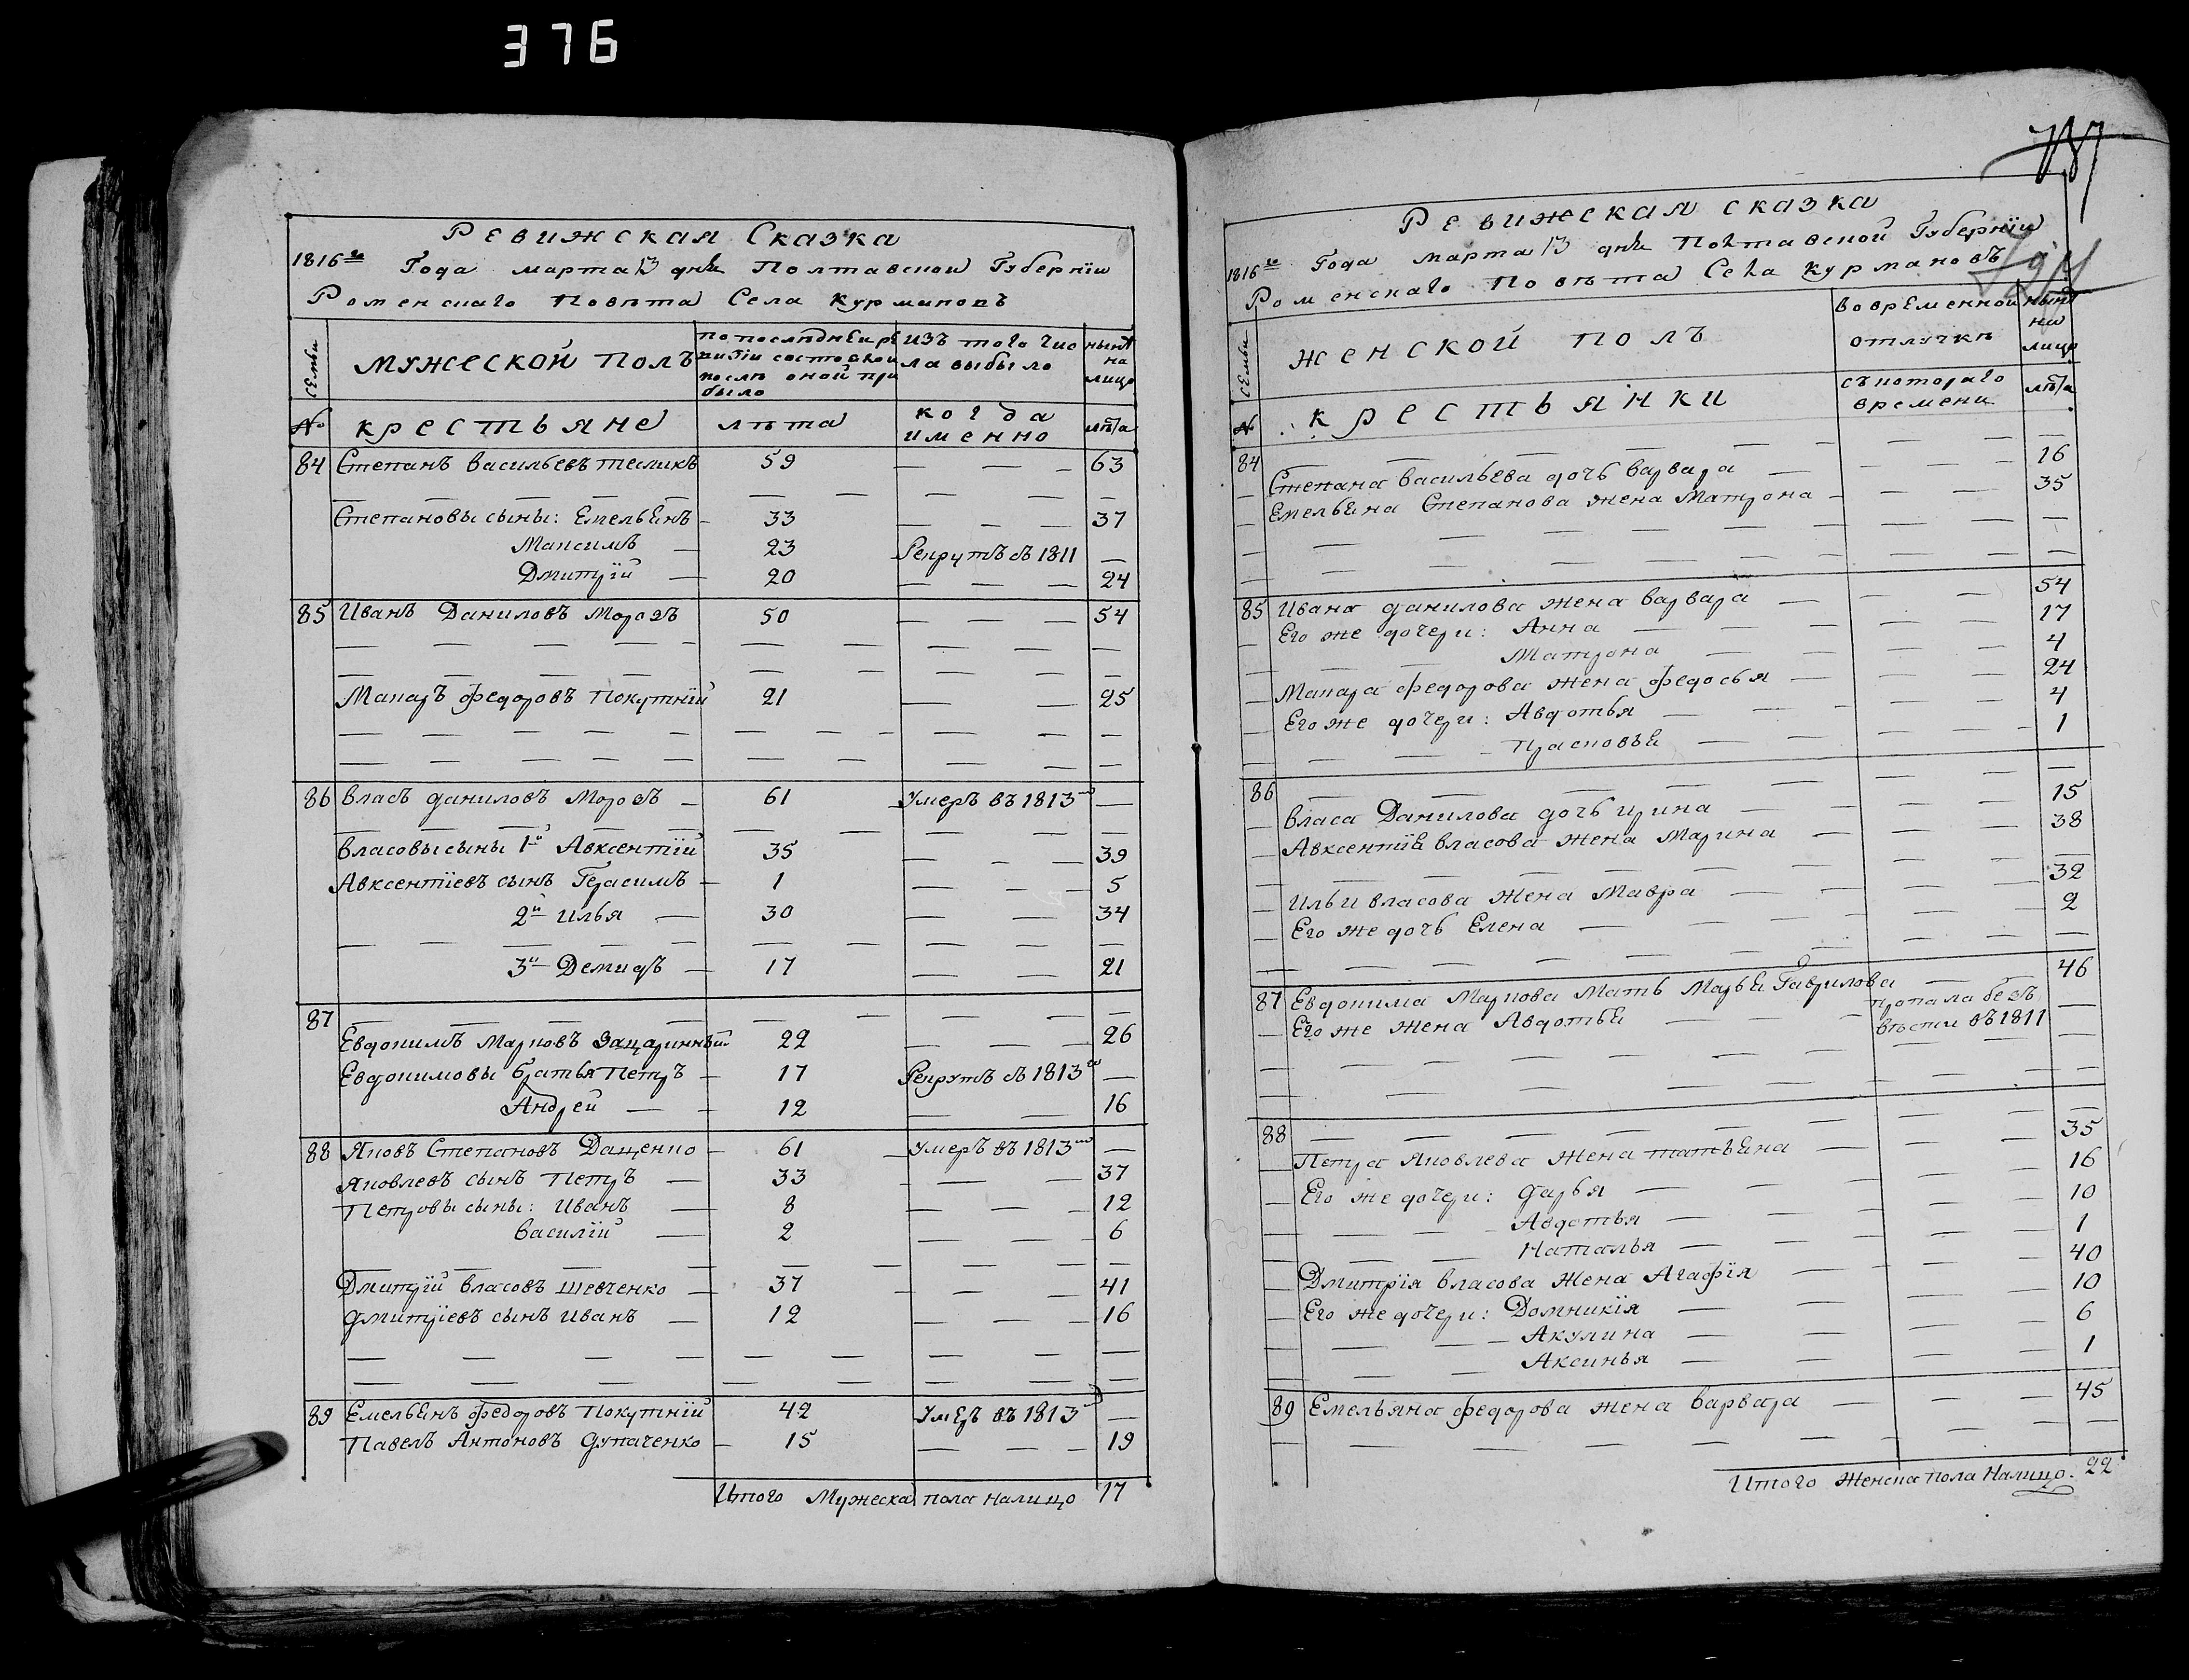 376
Ревижская Сказка
1816го Года марта 13 дня Полтавской Губернїи
Роменскаго Повѣта Села Курмановъ
семьи
мужеской полъ
по последней ре
визiи состояло и
послѣ оной при
было
изъ того чис
ла выбыло
нынѣ
на
лицо
№
крестьяне
лѣта
когда
именно
лѣта
84 Степанъ Васильевъ Тесликъ 59 — — — 63
Степановы сыны: Емельянъ — 33 — — — 37
Максимъ — 23 Рекрутъ въ 1811 —
Дмитрїй — 20 — — — 24
85 Иванъ Даниловъ Морозъ 50 — — — 54
Макаръ Федоровъ Покутнїй 21 — — 25
86 Власъ Даниловъ Морозъ — 61 Умеръ въ 1813го —
Власовы сыны 1й Авксентїй 35 — — — 39
Авксентїевъ сынъ Герасимъ — 1 — — — 5
2й Илья — 30 — — 34
3й Демидъ — 17 — — 21
87
Евдокимъ Марковъ Зацаринный 22 — — — 26
Евдокимовы братья Петръ — 17 Рекрутъ въ 1813го —
Андрей — — 12 — — 16
88 Яковъ Степановъ Даценко — 61 Умеръ въ 1813го —
Яковлевъ сынъ Петръ — 33 — — — 37
Петровы сыны: Иванъ — 8 — — — 12
Василїй — 2 — — — 6
Дмитрїй Власовъ Шевченко — 37 — — — 41
Дмитрїевъ сынъ Иванъ — 12 — — — 16
89 Емельянъ Федоровъ Покутнїй 42 Умеръ въ 1813го —
Павелъ Антоновъ Дупаченко — 15 — — — 19
Итого Мужеска пола налицо 17
Ревижская сказка
1816го Года марта 13 дня Полтавской Губернїи
Роменскаго Повѣта Села Курмановъ
семьи
женской полъ
во временной
отлучкѣ
нынѣ
на
лицо
№
крестьянки
съ котораго
времени
лѣта
84
Степана Васильева дочь Варвара — — — — 16
Емельяна Степанова жена Матрона — — — — 35
85 Ивана Данилова жена Варвара — — — 54
Его же дочери: Анна — — — — 17
Матрона — — — — 4
Макара Федорова жена Федосья — — — 24
Его же дочери: Авдотья — — — — 4
Прасковья — — — — 1
86
Власа Данилова дочь Ирина — — — — 15
Авксентїя Власова жена Марина — — — — 38
Ильи Власова жена Мавра — — — — 32
Его же дочь Елена — — — — 2
87 Евдокима Маркова Мать Марья Гаврилова — — 46
Его же жена Авдотья — — — пропала безъ
вѣсти въ 1811 —
88
Петра Яковлева жена Татьяна — — — — 35
Его же дочери: Дарья — — — — 16
Авдотья — — — — 10
Наталья — — — — 1
Дмитрїя Власова жена Агафїя — — — 40
Его же дочери: Домникїя — — — — 10
Акулина — — — — 6
Аксинья — — — — 1
89 Емельяна Федорова жена Варвара — — — 45
Итого женска пола Налицо. 22